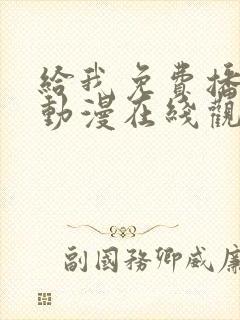 給我免費播
動漫在綫觀
副國務卿威廉